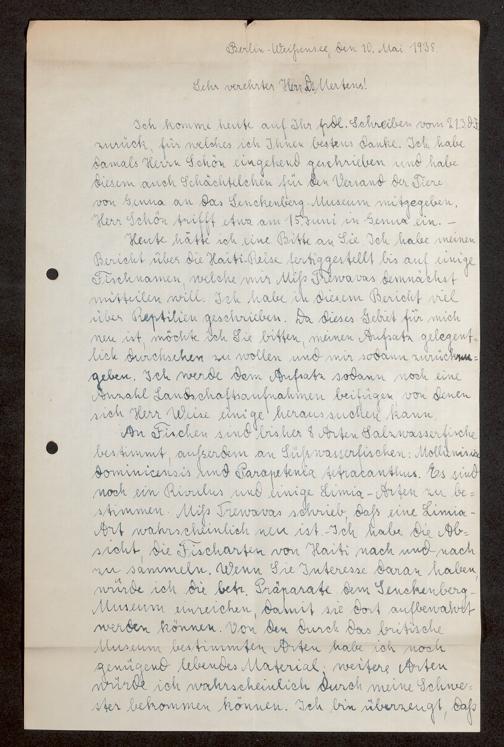 Berlin-Weißensee, den 10. Mai 1938
Sehr verehrter Herr Dr. Mertens!
Ich komme heute auf Ihr frdl. Schreiben vom 8.1.3. d. J.
zurück, für welches ich Ihnen bestens danke. Ich habe
damals Herrn Schön eingehend geschrieben und habe
diesem auch Schächtelchen für den Versand der Tiere
von Genua an das Senckenberg-Museum mitgegeben.
Herr Schön trifft etwa am 15. Juni in Genua ein. –
Heute hätte ich eine Bitte an Sie. Ich habe meinen
Bericht über die Haiti-Reise fertiggestellt bis auf einige
Fischnamen, welche mir Miß Trewavas demnächst
mitteilen will. Ich habe in diesem Bericht viel
über Reptilien geschrieben. Da dieses Gebiet für mich
neu ist, möchte ich Sie bitten, meinen Aufsatz gelegent-
lich durchsehen zu wollen und mir sodann zurückzu-
geben. Ich werde dem Aufsatz sodann noch eine
Anzahl Landschaftsaufnahmen beifügen von denen
sich Herr Weise einige heraussuchen kann.
An Fischen sind bisher 8 Arten Salzwasserfische
bestimmt, außerdem an Süßwasserfischen: Mollienisia
dominicensis und Parapetenia tetracanthus. Es sind
noch ein Rivulus und einige Limia-Arten zu be-
stimmen. Miß Trewavas schrieb, daß eine Limia-
Art wahrscheinlich neu ist. Ich habe die Ab-
sicht, die Fischarten von Haiti nach und nach
zu sammeln. Wenn Sie Interesse daran haben,
würde ich die betr. Präparate dem Senckenberg-
Museum einreichen, damit sie dort aufbewahrt
werden können. Von den durch das britische
Museum bestimmten Arten habe ich noch
genügend lebendes Material, weitere Arten
würde ich wahrscheinlich durch meine Schwe-
ster bekommen können. Ich bin überzeugt, daß